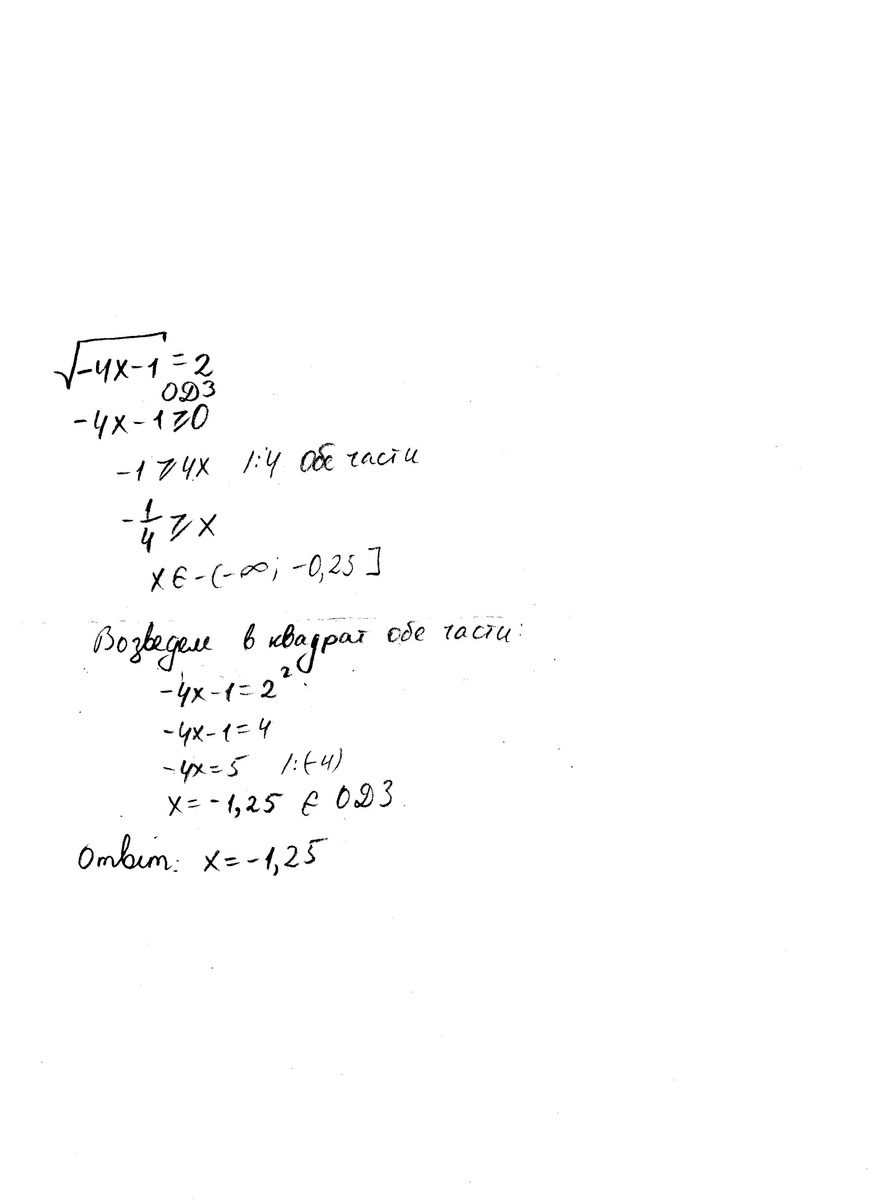 √-4x-1 = 2
ОДЗ
-4x-1⩾0
-1⩾4x /:4 Обе части
-1/4 ⩾ x
x∈-(-∞; -0,25]
Возведем в квадрат обе части:
-4x-1=2²
-4x-1=4
-4x=5 /:(-4)
x=-1,25 ∈ ОДЗ
Ответ: x=-1,25